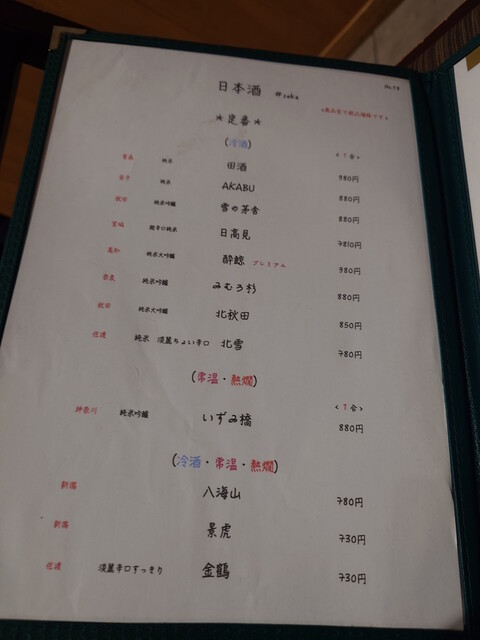 日本酒 #sake
No.17
<表示全て税込価格です>
★定番★
(冷酒)
<1合>
青森 純米 田酒 980円
岩手 純米 AKABU 880円
秋田 純米吟醸 雪の茅舎 880円
宮城 超辛口純米 日高見 780円
高知 純米大吟醸 酔鯨 プレミアム 980円
奈良 純米吟醸 みむろ杉 880円
秋田 純米大吟醸 北秋田 850円
佐渡 純米 淡麗ちょい辛口 北雪 780円
(常温・熱燗)
<1合>
神奈川 純米吟醸 いずみ橋 880円
(冷酒・常温・熱燗)
新潟 八海山 780円
新潟 景虎 730円
佐渡 淡麗辛口すっきり 金鶴 730円